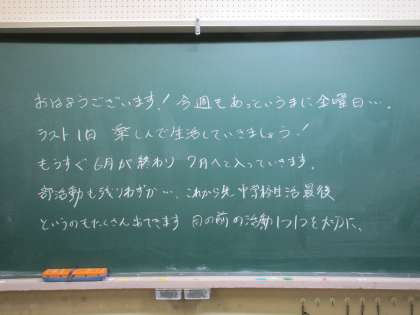 おはようございます! 今週もあっというまに金曜日…。
ラスト1日 楽しんで生活していきましょう!
もうすぐ6月が終わり 7月へと入っていきます。
部活動も残りわずか…。これから先 中学校生活最後
というのもたくさん出てきます 目の前の活動1つ1つを大切に、